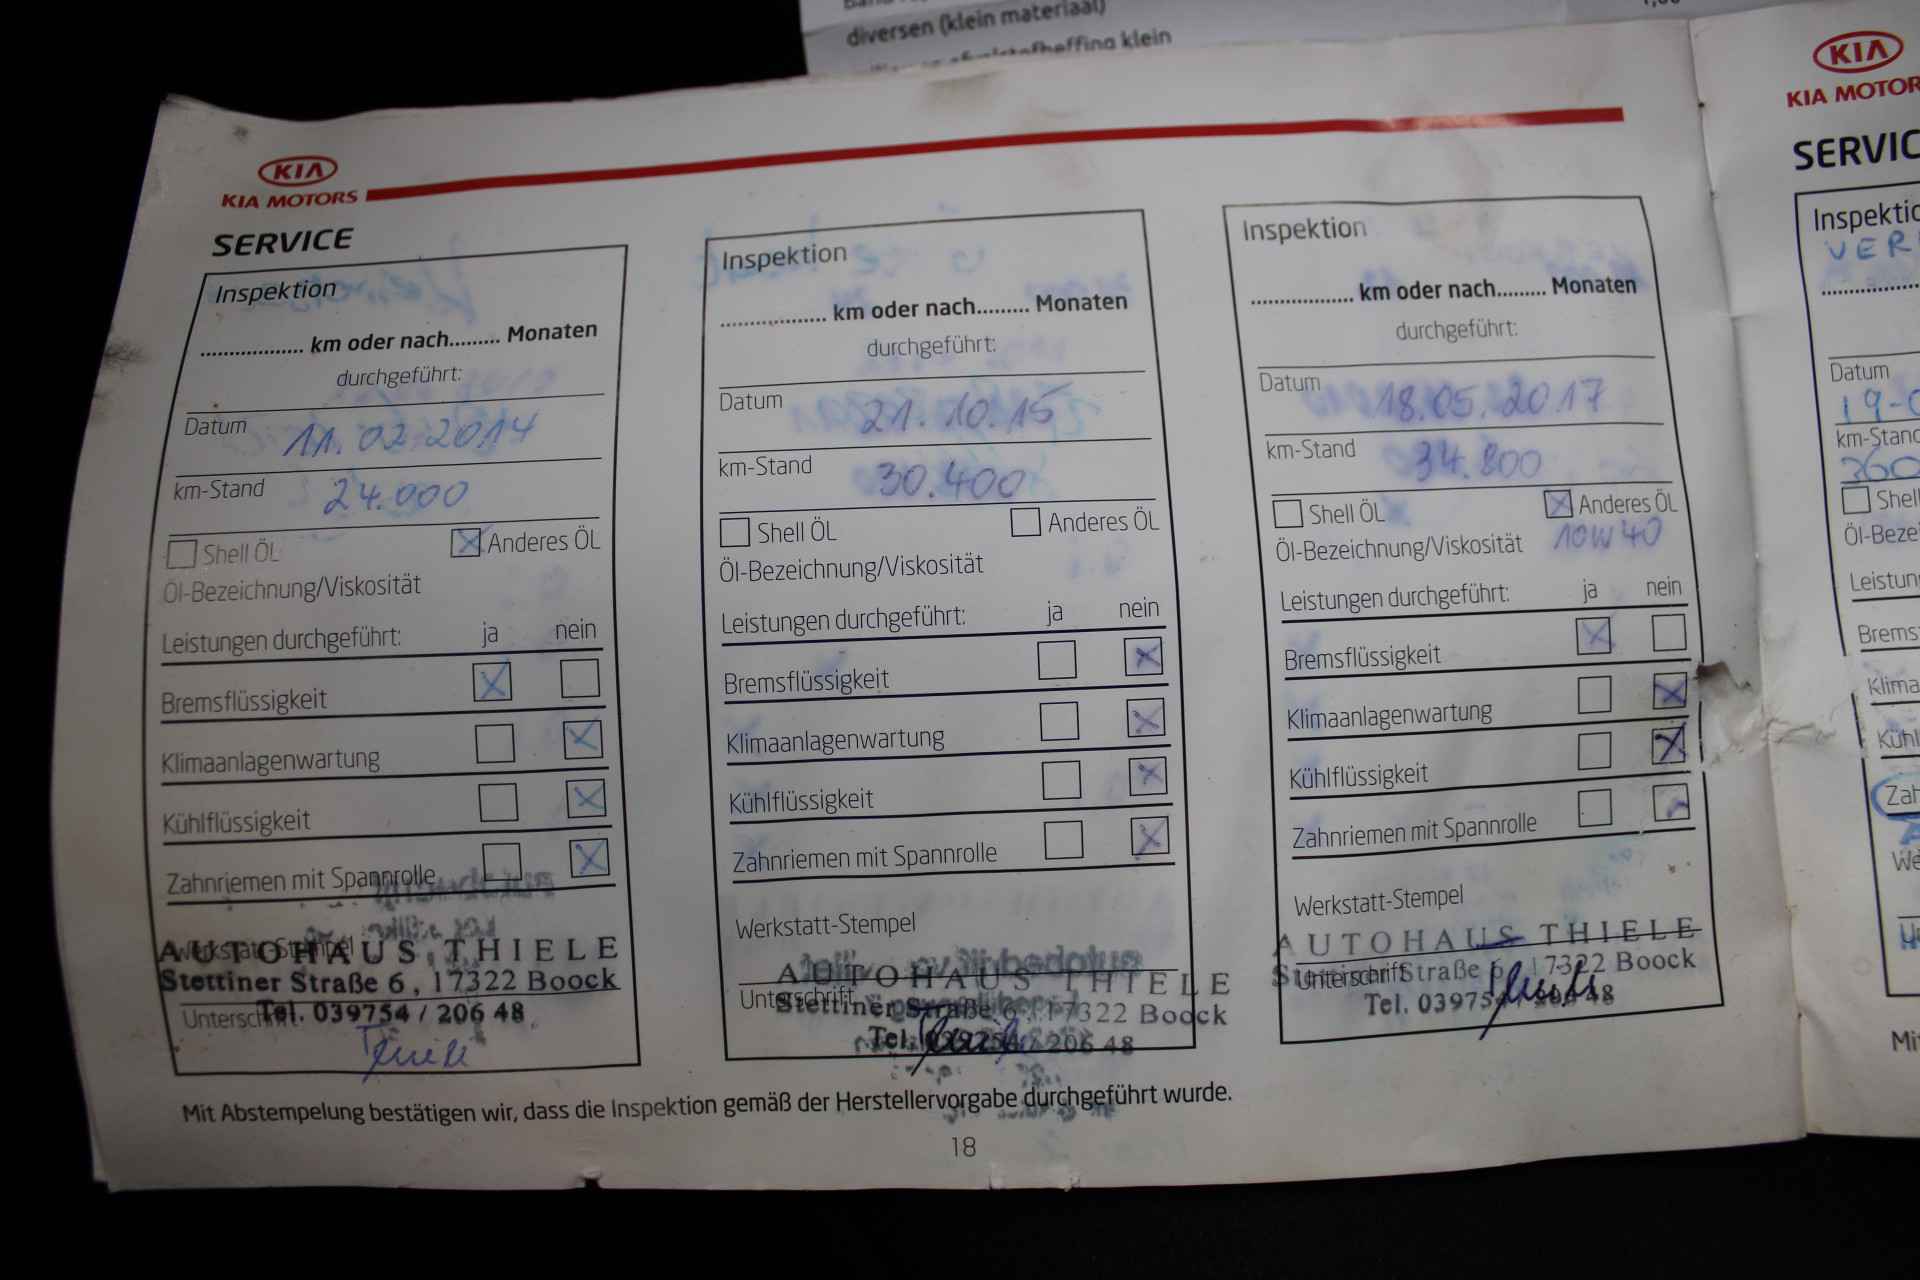 diversen (klein materiaal)
KIA
KIA MOTORS
SERVICE
Inspektion
.................. km oder nach......... Monaten
durchgeführt:
Datum 11.02.2014
km-Stand 24.000
Shell ÖL Anderes ÖL
Öl-Bezeichnung/Viskosität
Leistungen durchgeführt: ja nein
Bremsflüssigkeit
Klimaanlagenwartung
Kühlflüssigkeit
Zahnriemen mit Spannrolle
Werkstatt-Stempel
AUTOHAUS THIELE
Stettiner Straße 6, 17322 Boock
Unterschrift
Tel. 039754 / 206 48
Inspektion
.................. km oder nach......... Monaten
durchgeführt:
Datum 21.10.15
km-Stand 30.400
Shell ÖL Anderes ÖL
Öl-Bezeichnung/Viskosität
Leistungen durchgeführt: ja nein
Bremsflüssigkeit
Klimaanlagenwartung
Kühlflüssigkeit
Zahnriemen mit Spannrolle
Werkstatt-Stempel
AUTOHAUS THIELE
Unterschrift
Stettiner Straße 6, 17322 Boock
Tel. 039754 / 206 48
Inspektion
.................. km oder nach......... Monaten
durchgeführt:
Datum 18.05.2017
km-Stand 34.800
Shell ÖL Anderes ÖL
Öl-Bezeichnung/Viskosität 10W40
Leistungen durchgeführt: ja nein
Bremsflüssigkeit
Klimaanlagenwartung
Kühlflüssigkeit
Zahnriemen mit Spannrolle
Werkstatt-Stempel
AUTOHAUS THIELE
Stettiner Straße 6, 17322 Boock
Unterschrift
Tel. 039754 / 206 48
Mit Abstempelung bestätigen wir, dass die Inspektion gemäß der Herstellervorgabe durchgeführt wurde.
18
KIA
KIA MOTOR
SERVIC
Inspektio
VER
Datum
19-0
km-Stand
360
Shell
Öl-Beze
Leistun
Brems
Klima
Kühl
Zah
We
Mi